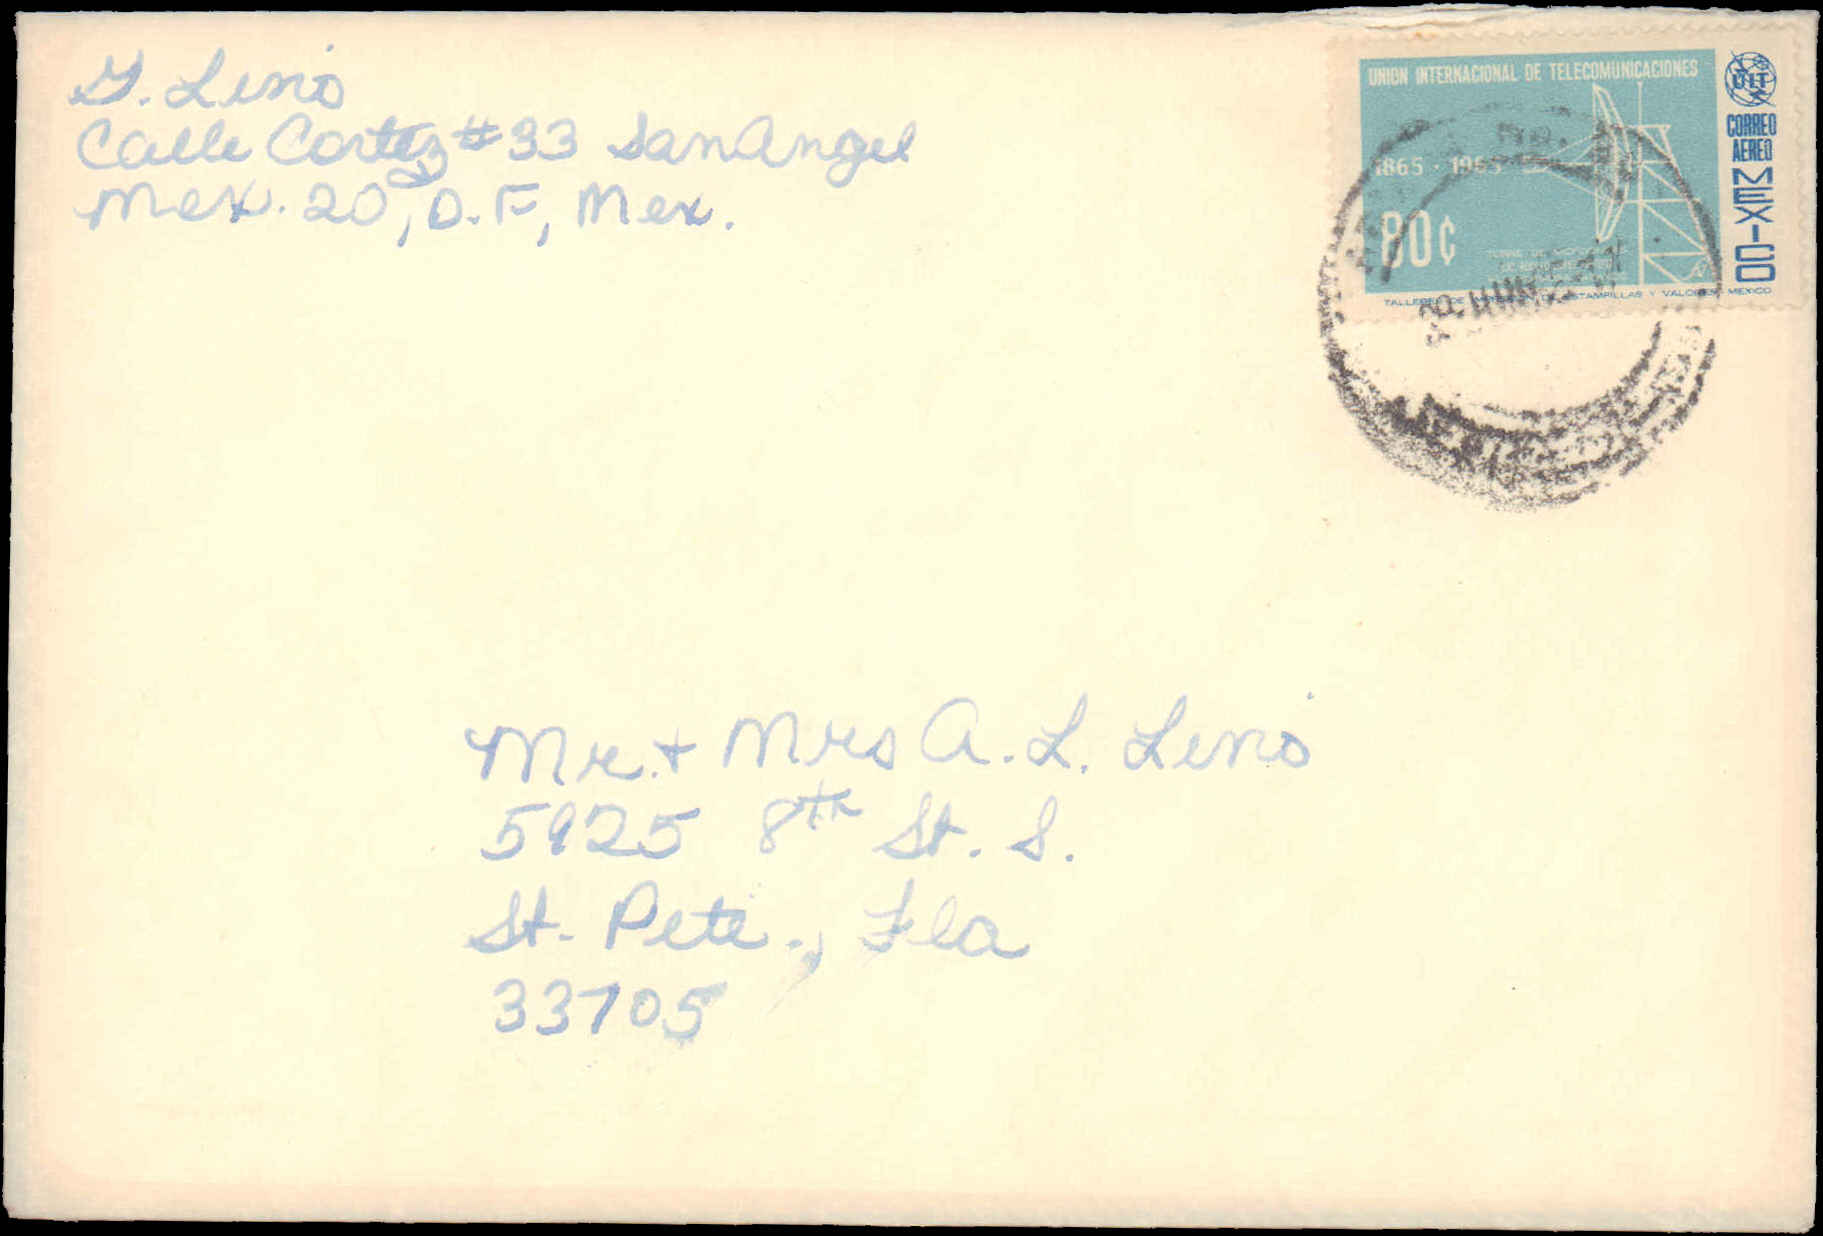 G. Lenis
Calle Cortez #33 San Angel
Mex. 20, D.F, Mex.
UNION INTERNACIONAL DE TELECOMUNICACIONES
UIT
CORREO
AEREO
MEXICO
1865 - 1965
80¢
TALLERES DE ESTAMPILLAS Y VALORES MEXICO
Mr. + Mrs A. L. Lenis
5925 8th St. S.
St. Pete., Fla
33705